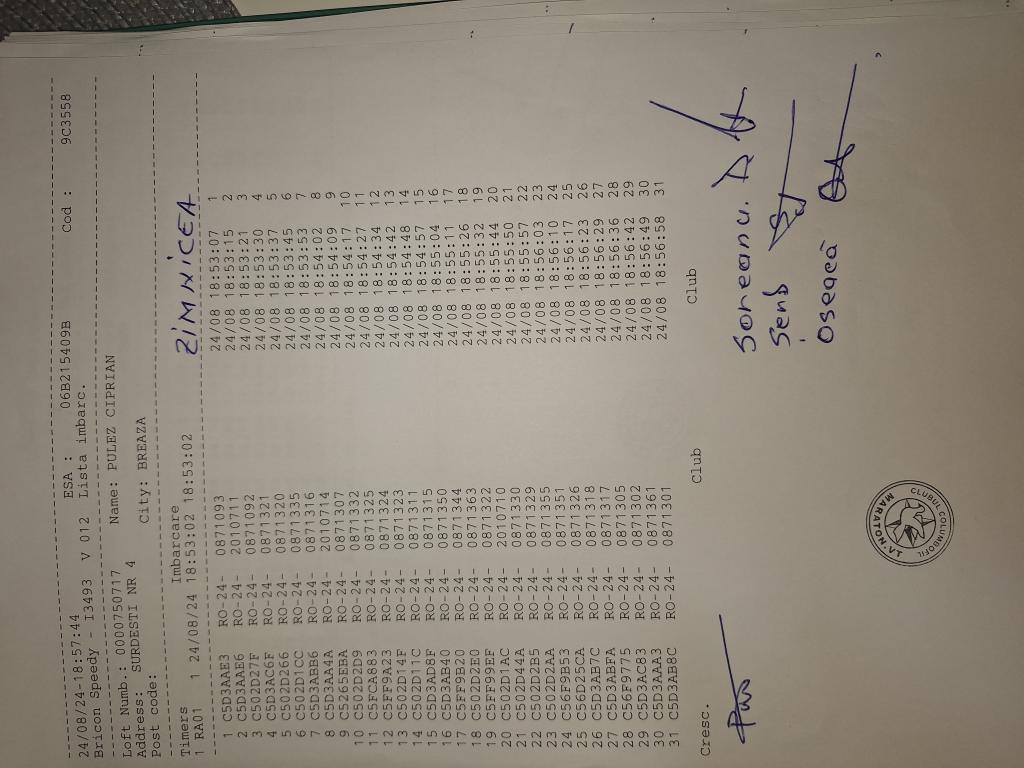 24/08/24-18:57:44 ESA : 06B215409B cod : 9C3558
Bricon Speedy - I3493 V 012 Lista imbarc.
Loft Numb.: 0000750717 Name: PULEZ CIPRIAN
Address: SURDESTI NR 4
Post code: City: BREAZA
Timers Imbarcare ZIMNICEA
1 RA01 1 24/08/24 18:53:02 18:53:02
1 C5D3AAE3 RO-24- 0871093 24/08 18:53:07 1
2 C5D3AAE6 RO-24- 2010711 24/08 18:53:15 2
3 C502D27F RO-24- 0871092 24/08 18:53:21 3
4 C5D3AC6F RO-24- 0871321 24/08 18:53:30 4
5 C502D266 RO-24- 0871320 24/08 18:53:37 5
6 C502D1CC RO-24- 0871335 24/08 18:53:45 6
7 C5D3ABB6 RO-24- 0871316 24/08 18:53:53 7
8 C5D3AA4A RO-24- 2010714 24/08 18:54:02 8
9 C5265EBA RO-24- 0871307 24/08 18:54:09 9
10 C502D2D9 RO-24- 0871332 24/08 18:54:17 10
11 C5FCA883 RO-24- 0871325 24/08 18:54:27 11
12 C5FF9A23 RO-24- 0871324 24/08 18:54:34 12
13 C502D14F RO-24- 0871323 24/08 18:54:42 13
14 C502D11C RO-24- 0871311 24/08 18:54:48 14
15 C5D3AD8F RO-24- 0871315 24/08 18:54:57 15
16 C5D3AB40 RO-24- 0871350 24/08 18:55:04 16
17 C5FF9B20 RO-24- 0871344 24/08 18:55:11 17
18 C5D2D2E0 RO-24- 0871363 24/08 18:55:26 18
19 C5FF99EF RO-24- 0871322 24/08 18:55:32 19
20 C502D1AC RO-24- 2010710 24/08 18:55:44 20
21 C502D44A RO-24- 0871330 24/08 18:55:50 21
22 C502D2B5 RO-24- 0871329 24/08 18:55:57 22
23 C502D2AA RO-24- 0871355 24/08 18:56:03 23
24 C56F9B53 RO-24- 0871351 24/08 18:56:10 24
25 C56D25CA RO-24- 0871326 24/08 18:56:17 25
26 C5D3AB7C RO-24- 0871318 24/08 18:56:23 26
27 C5D3ABFA RO-24- 0871317 24/08 18:56:29 27
28 C56F9775 RO-24- 0871305 24/08 18:56:36 28
29 C5D3AC83 RO-24- 0871302 24/08 18:56:42 29
30 C5D3AAA3 RO-24- 0871361 24/08 18:56:49 30
31 C5D3AB8C RO-24- 0871301 24/08 18:56:58 31
Cresc. Club Club
Soreanu. D
Oseacă
MARATON.VT CLUBUL COLUMBOFIL